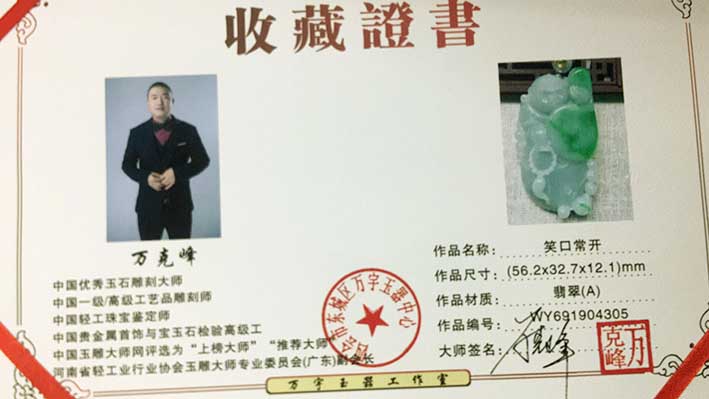 收藏證書
万克峰
中国优秀玉石雕刻大师
中国一级/高级工艺品雕刻师
中国轻工珠宝鉴定师
中国贵金属首饰与宝玉石检验高级工
中国玉雕大师网评选为“上榜大师”“推荐大师”
河南省轻工业行业协会玉雕大师专业委员会(广东)副会长
作品名称： 笑口常开
作品尺寸： (56.2x32.7x12.1)mm
作品材质： 翡翠(A)
作品编号： WY691904305
大师签名： 万克峰
万克峰
东城区万字玉器中心
万字玉器工作室